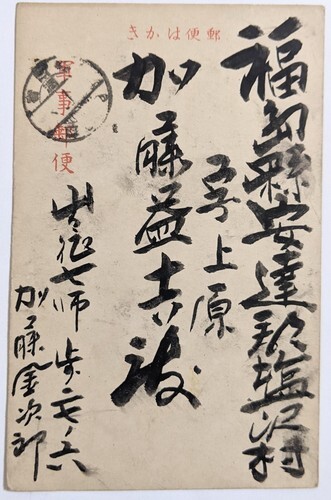 郵便はかき
福島縣安達郡塩沢村
字上原
加藤益吉殿
軍事郵便
出征七師 歩二七ノ六
加藤金次郎